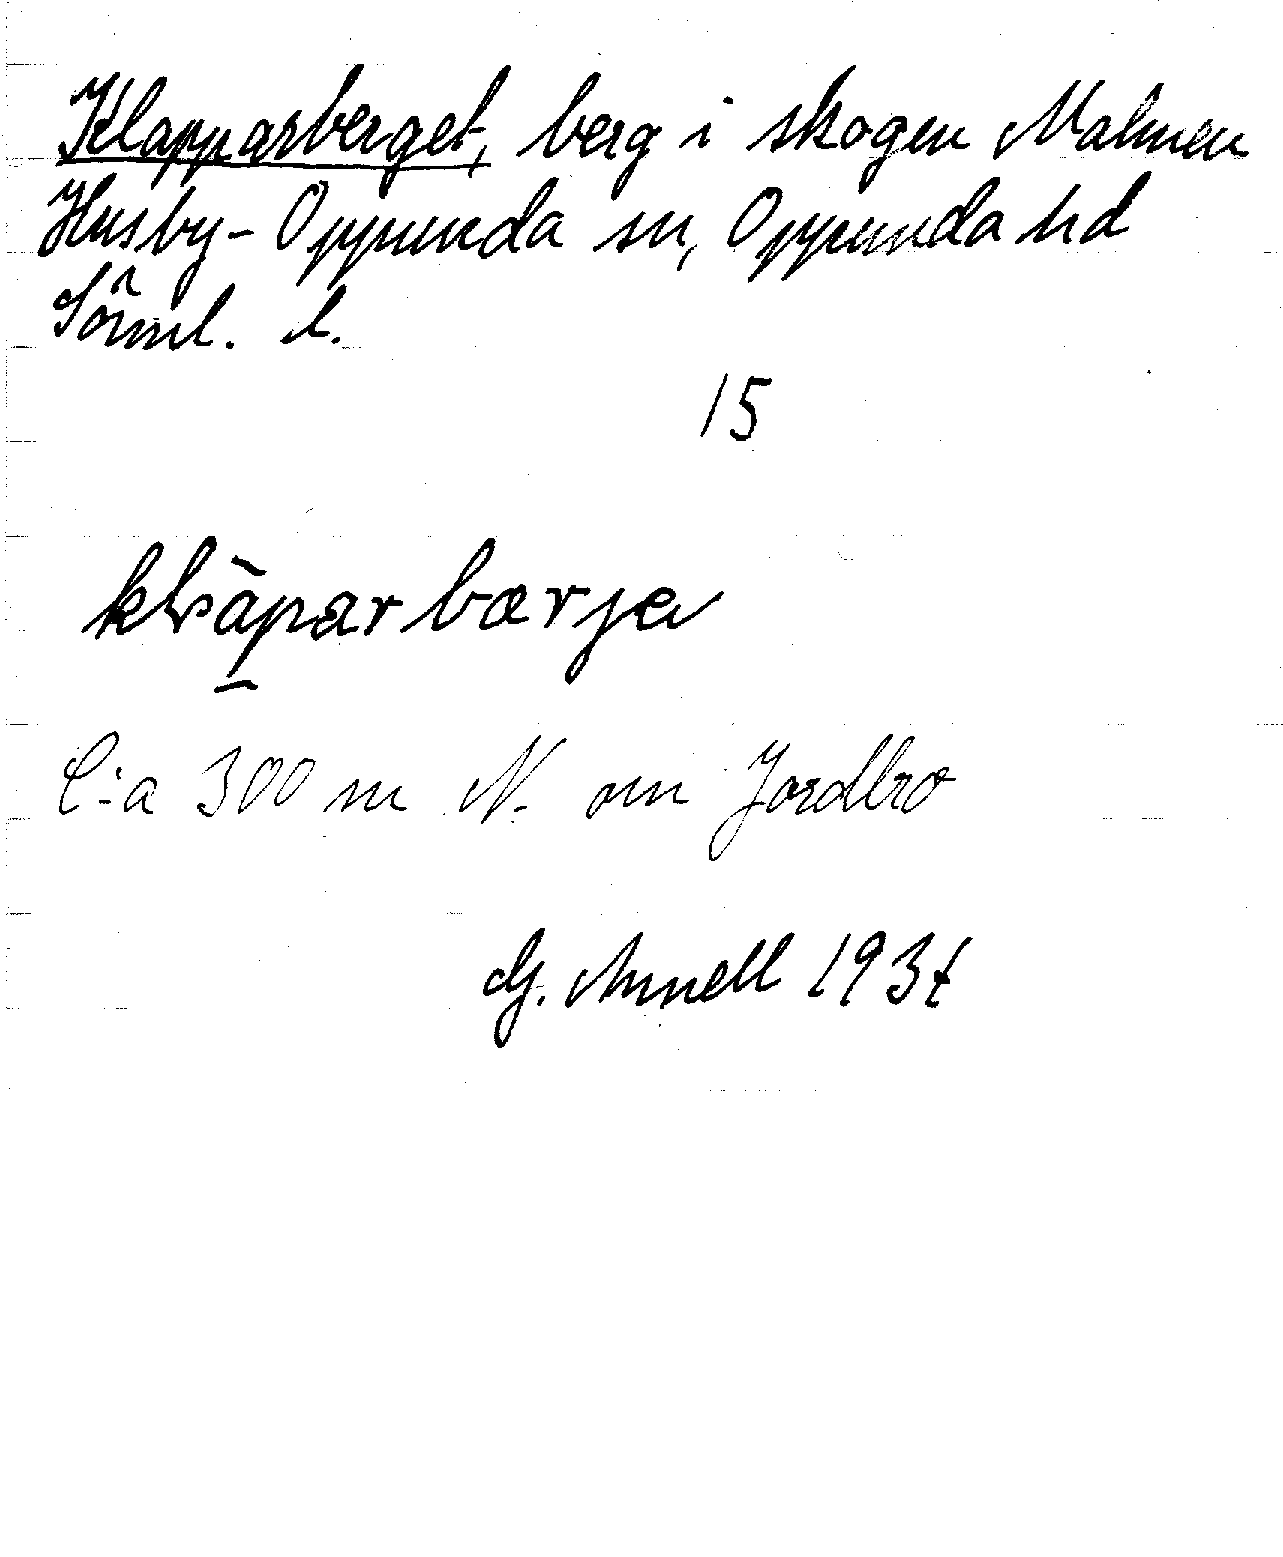 Klapparberget, berg i skogen Malmen
Husby-Oppunda sn, Oppunda hd
Sörml. l.
15
klàparbærjen
C:a 300 m N. om Jordbro
G. Annell 1934